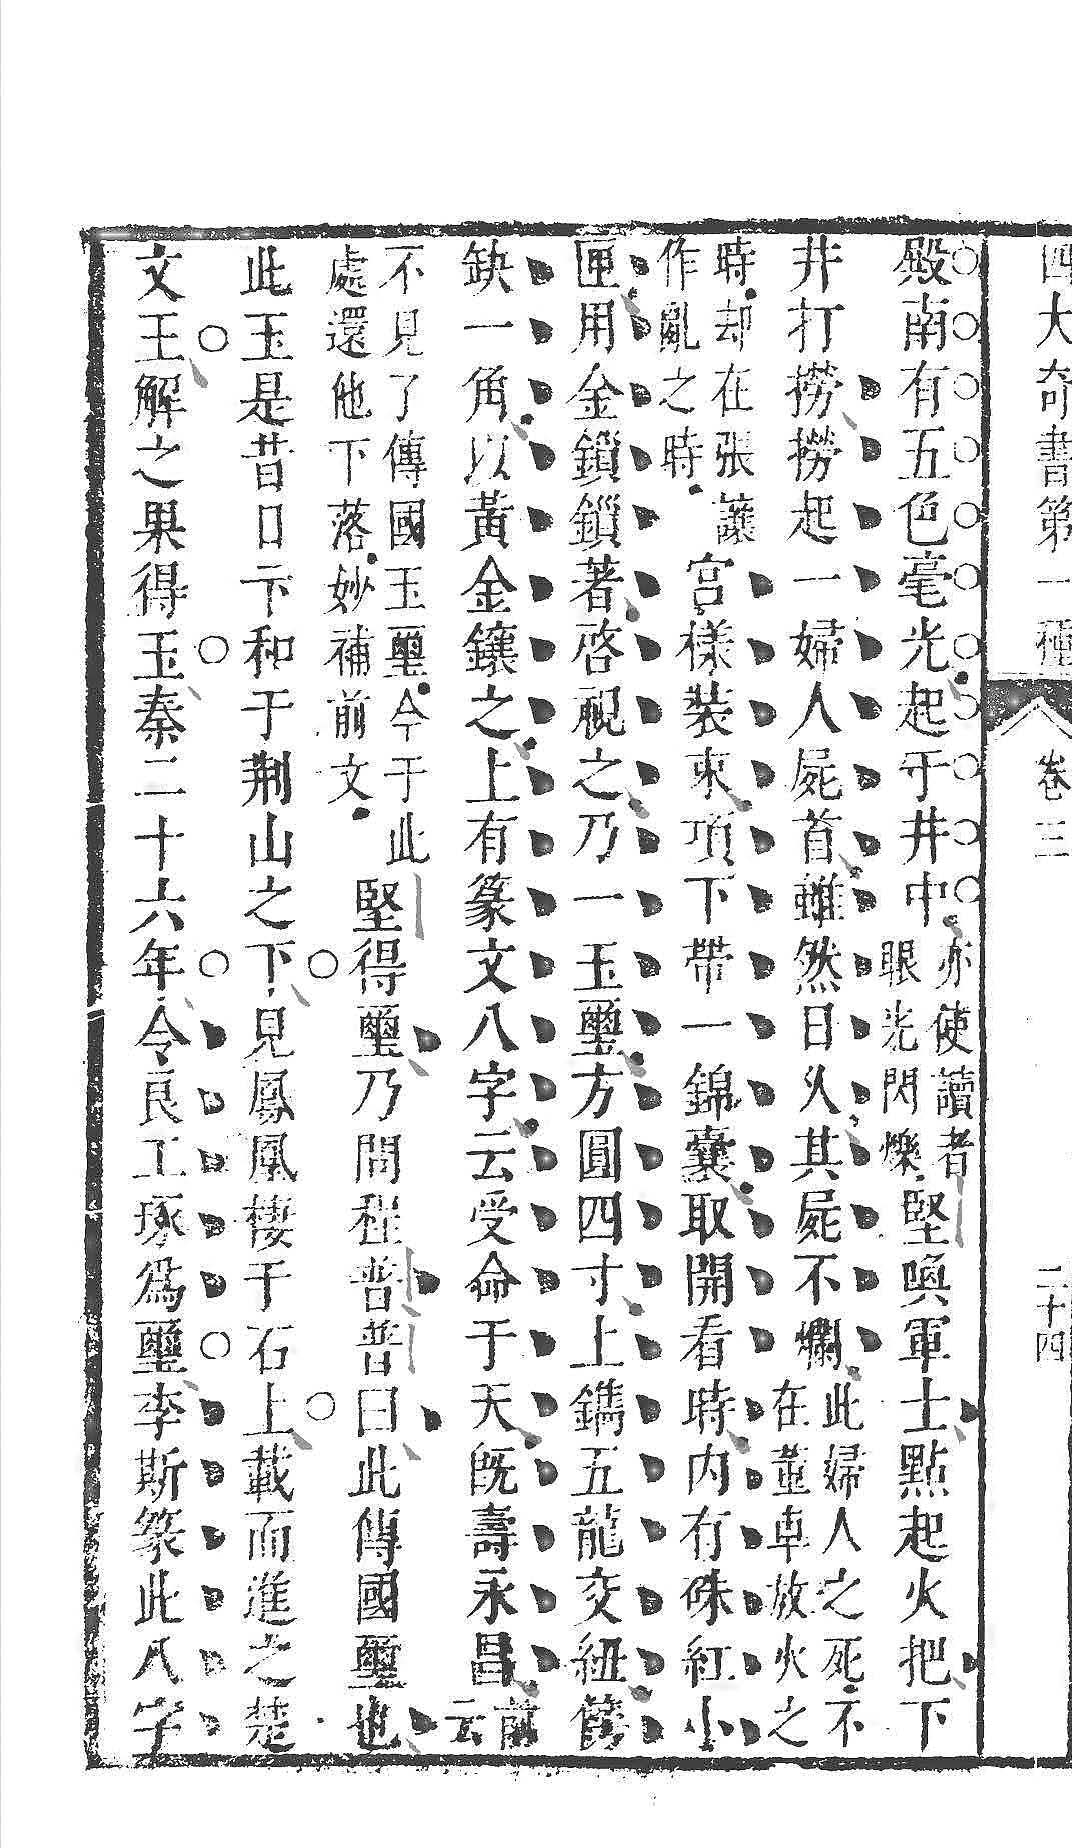 四大奇書第一種 卷三 二十四
殿南有五色毫光起于井中亦使讀者眼光閃爍堅喚軍士點起火把下
井打撈撈起一婦人屍首雖然日久其屍不爛此婦人之死不在董卓放火之
時却在張讓作亂之時宮樣裝束項下帶一錦囊取開看時內有硃紅小
匣用金鎖鎖著啓視之乃一玉璽方圓四寸上鐫五龍交紐傍
缺一角以黃金鑲之上有篆文八字云受命于天旣壽永昌前云
不見了傳國玉璽今于此處還他下落妙補前文堅得璽乃問程普普曰此傳國璽也
此玉是昔日卞和于荆山之下見鳳凰棲于石上載而進之楚
文王解之果得玉秦二十六年令良工琢爲璽李斯篆此八字